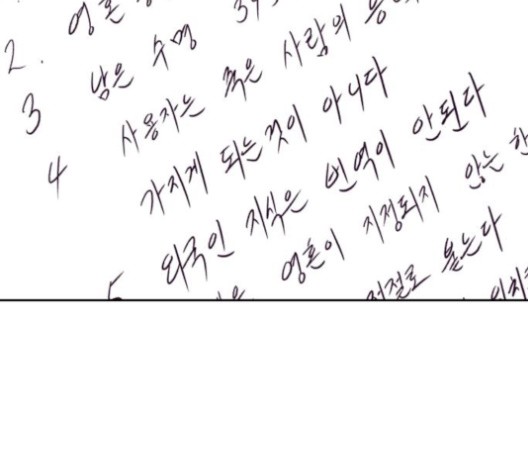 2. 영혼
3 남은 수명
4 사용자는 죽은 사람의
가지게 되는것이 아니다
5 외국인 지식은 번역이 안된다
영혼이 지정되지 않는 한
저절로 붙는다